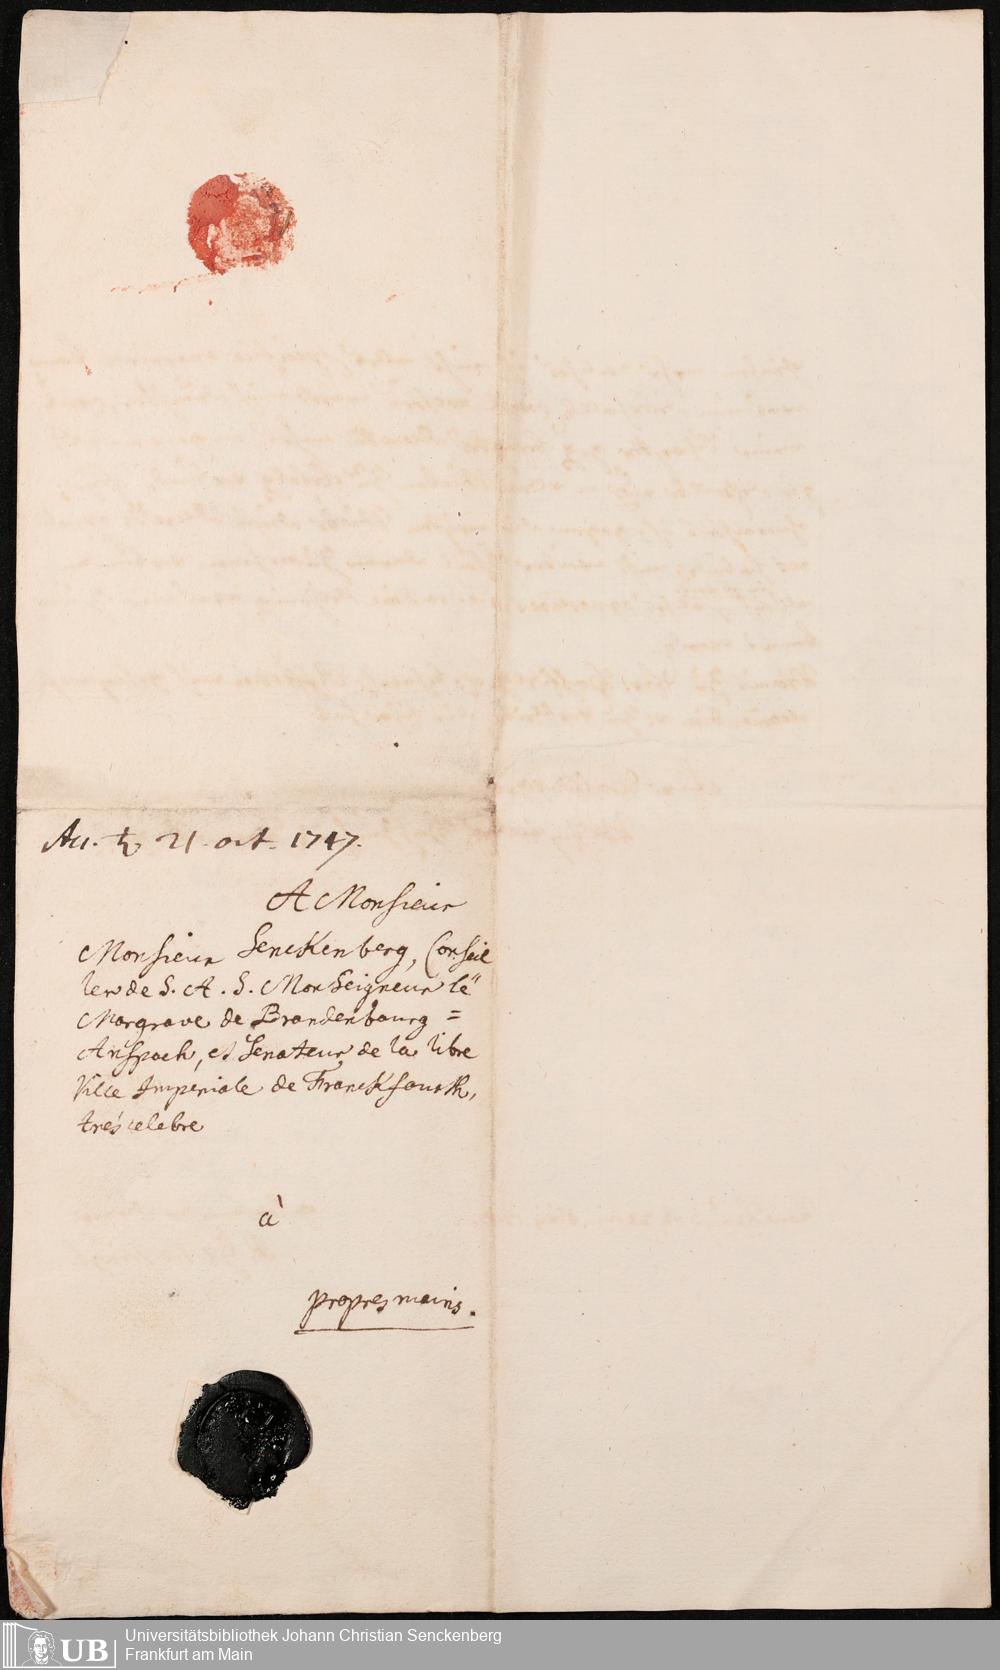 Acc. ♄ 21. oct. 1747.
A Monsieur
Monsieur Senckenberg, Conseil
ler de S. A. S. Monseigneur le
Margrave de Brandenbourg =
Anspach, et Senateur de la libre
Ville Imperiale de Franckfourth,
trés celebre
à
propres mains.
UB
Universitätsbibliothek Johann Christian Senckenberg
Frankfurt am Main